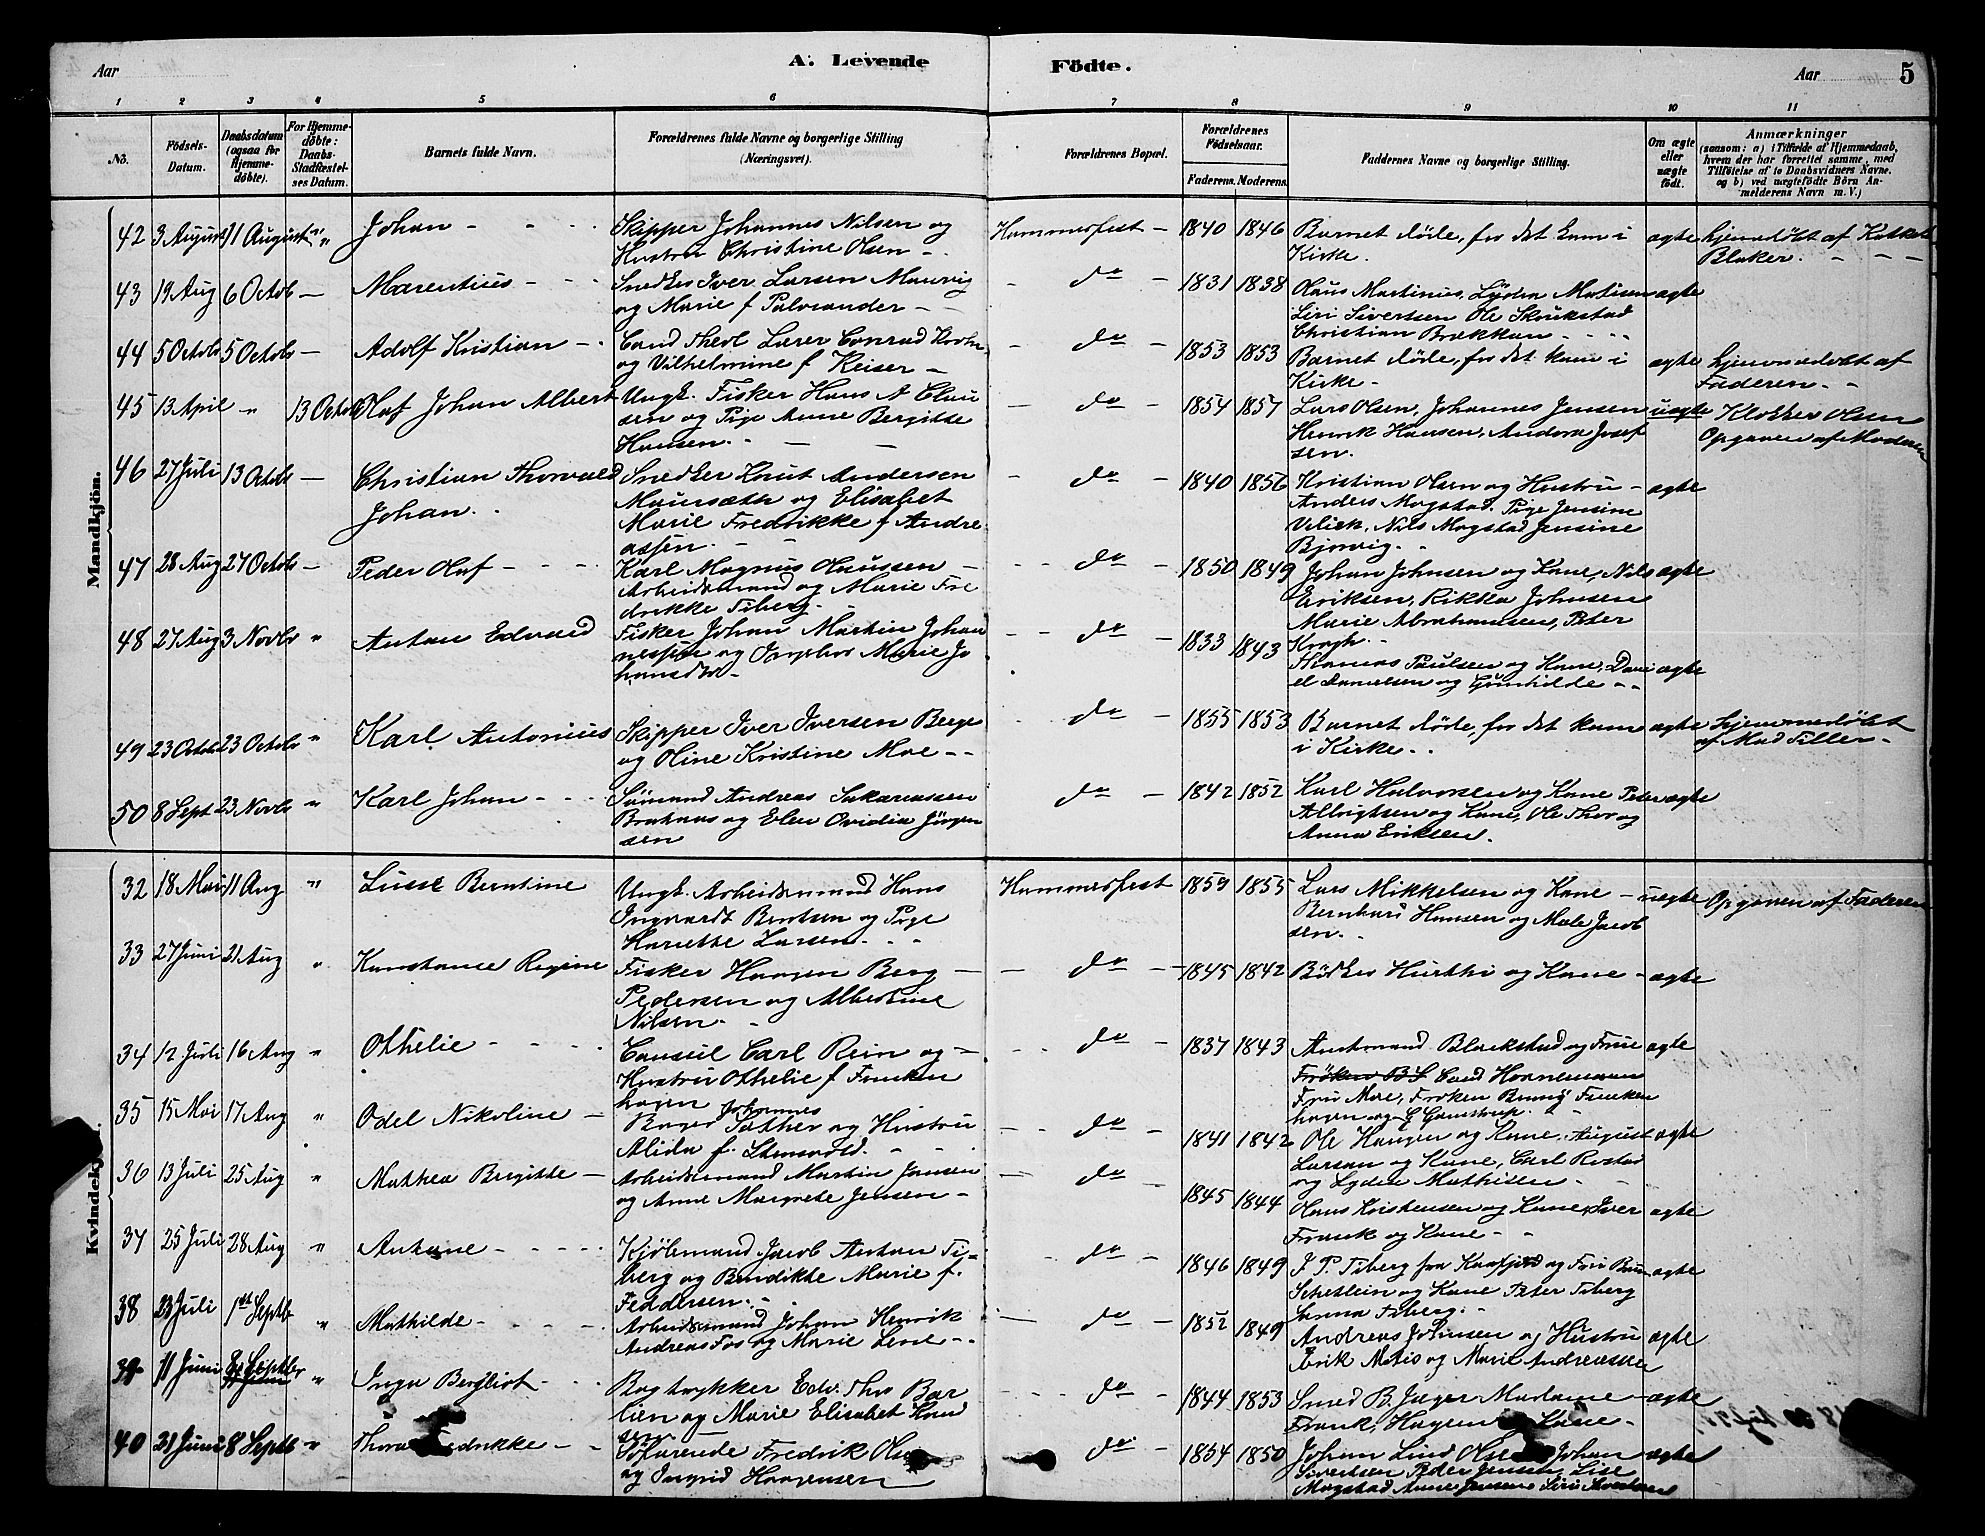 Aar
A. Levende Födte.
Aar 5
1 2 3 4 5 6 7 8 9 10 11
No.
Födsels-
Datum.
Daabsdatum
(ogsaa for
Hjemme-
döbte).
For Hjemme-
döbte:
Daabs-
Stadfæstel-
ses Datum.
Barnets fulde Navn.
Forældrenes fulde Navne og borgerlige Stilling
(Næringsvei).
Forældrenes Bopæl.
Forældrenes
Födselsaar.
Faderens. Moderens.
Faddernes Navne og borgerlige Stilling.
Om ægte
eller
uægte
födt.
Anmærkninger
(saasom: a) i Tilfælde af Hjemmedaab,
hvem der har forrettet samme, med
Tilföielse af to Daabsvidners Navne.
og b) ved uægtefödte Börn An-
melderens Navn m. V.)
Mandkjön.
42 3 August 11 August " Johan - - -
Skipper Johannes Nilsen og
Hustru Christine Olsen -
Hammerfest - 1840 1846
Barnet döde, før det kom i
Kirke.
ægte
hjemmedöbt af
Blaker. - - -
43 19 Aug 6 Octob - Marentius - - -
Snedker Iver Larsen
og Marie f Palveander -
do - 1831 1838
Olaus Martinius, Lydia Matisen
Liri Sivertsen Ole Skrukstad
Christian Brækkan - - -
ægte
44 5 Octob 5 Octob - Adolf Kristian - -
Cand Theol Lærer Conrad
og Vilhelmine f Keiser -
do - 1853 1853
Barnet döde, før det kom i
Kirke -
ægte
hjemmedöbt af
Faderen. -
45 13 April " 13 Octob Olaf Johan Albert
Ungk. Fisker Hans A Clau
sen og Pige Anne Bergitte
Hansen. - - -
do - 1854 1857
Lars Olsen, Johannes Jensen
Henrik Hansen, Andora Josef
sen.
uægte
Klokker Olsen
Opgaven af Moderen
46 27 Juli 13 Octob - Christian Thorvald
Johan. -
Snedker Knut Andersen
Maursæth og Elisabet
Marie Fredrikke f Andre
assen. - -
do - 1840 1856
Kristian Olsen og Hustru -
Anders Mogstad. Pige Jensine
Nils Mogstad Jensine
Bjorvig. -
ægte
47 28 Aug 27 Octob - Peder Olaf - - -
Karl Magnus Olaussen -
Arbeidsmand og Marie Fre
drikke Tiberg. -
do - 1850 1849
Johan Johnsen og Kone, Nils
Eriksen, Rikka Johnsen
Marie Abrahamsen, Peter
Krogh. -
ægte
48 27 Aug 3 Novbr " Anton Edvard
Fisker Johan Martin Johan
nessen og Marie Jo
hansdtr -
do - 1833 1843
Thomas Paulsen og Kone, Dani
el Danielsen og Gunhilde - -
ægte
49 23 Octob 23 Octobr " Karl Antonius
Skipper Iver Iversen Berge
og Oline Kristine Moe - -
do - 1855 1853
Barnet döde, før det kom
i Kirke - -
ægte
hjemmedöbt
af Mad Tiller -
50 8 Sept 23 Novbr " Karl Johan - - -
Sömand Andreas Sakariassen
og Elen Ovidia Jörgen
sen
do - 1842 1852
Karl Halvorsen og Kone Peter
Albrigtsen og Kone, Ole Thor og
Anna Eriksen.
ægte
Kvindekjön.
32 18 Mai 11 Aug " Lusse Berntine
Ungk. Arbeidsmand Hans
Ingvardt Berntsen og Pige
Hariette Larsen. - -
Hammerfest 1859 1855
Lars Mikkelsen og Kone -
Bernhard Hansen og Male Jacob
sen. -
uægte
Opgaven af Faderen
33 27 Juni 21 Aug " Konstanse Regine
Fisker Haagen Berg -
Pedersen og Albertine
Nilsen. -
do - 1845 1842
Bödker og Kone -
ægte
34 12 Juli 16 Aug " Othelie - - - -
Consul Carl Rein og -
Hustru Othelie f Fincken
hagen
do - 1837 1843
Amtmand Blackstad og Frue
Fröken B S Cand Hornemann
Fru Moe, Fröken Fincken
hagen og G Gamstrup. -
ægte
35 15 Mai 17 Aug " Odel Nikoline -
Johannes
Bager Sather og Hustru
Alida f. Stensvold. - -
do - 1841 1842
Ole Haagen og Kone, August
Larsen og Kone, Carl Rostad
og Lydia Mathisen - -
ægte
36 13 Juli 25 Aug " Mathea Bergitte -
Arbeidsmand Martin Jensen
og Anne Margrete Jensen -
do - 1845 1844
Hans Kristensen og Kone, Iver
Frank og Kone - -
ægte
37 25 Juli 28 Aug " Antone - - - -
Kjöbmand Jacob Anton Ti-
berg og Bendikte Marie f.
Feddersen. -
do - 1846 1849
J P. Tiberg fra Kaafjord og Fru
og Kone Peter Tiberg
Tiberg. -
ægte
38 23 Juli 1st Septb " Mathilde - - - -
Arbeidsmand Johan Henrik
Andreas Fos og Marie Lene - -
do - 1852 1849
Andreas Johnsen og Hustru
Erik Matis og Marie Andreassen
ægte
39 11 Juni 8 Septbr " Inga Bergliot - -
Bogtrykker Edv. Ths Bar
lien og Marie Elisabet Knud
sen -
do - 1844 1853
Smed B. Jæger Madame
Frank, Hagen Lane -
ægte
40 21 Juni 8 Septb " Thora Fredrikke - -
Söfarende Fredrik Olsen
og Ingrid Haagensen
do - 1854 1850
Johan Lind Olsen Johan
Sivertsen Peder Jensen, Lise
Mogstad Anne Jensen Siri Sivertsen
ægte